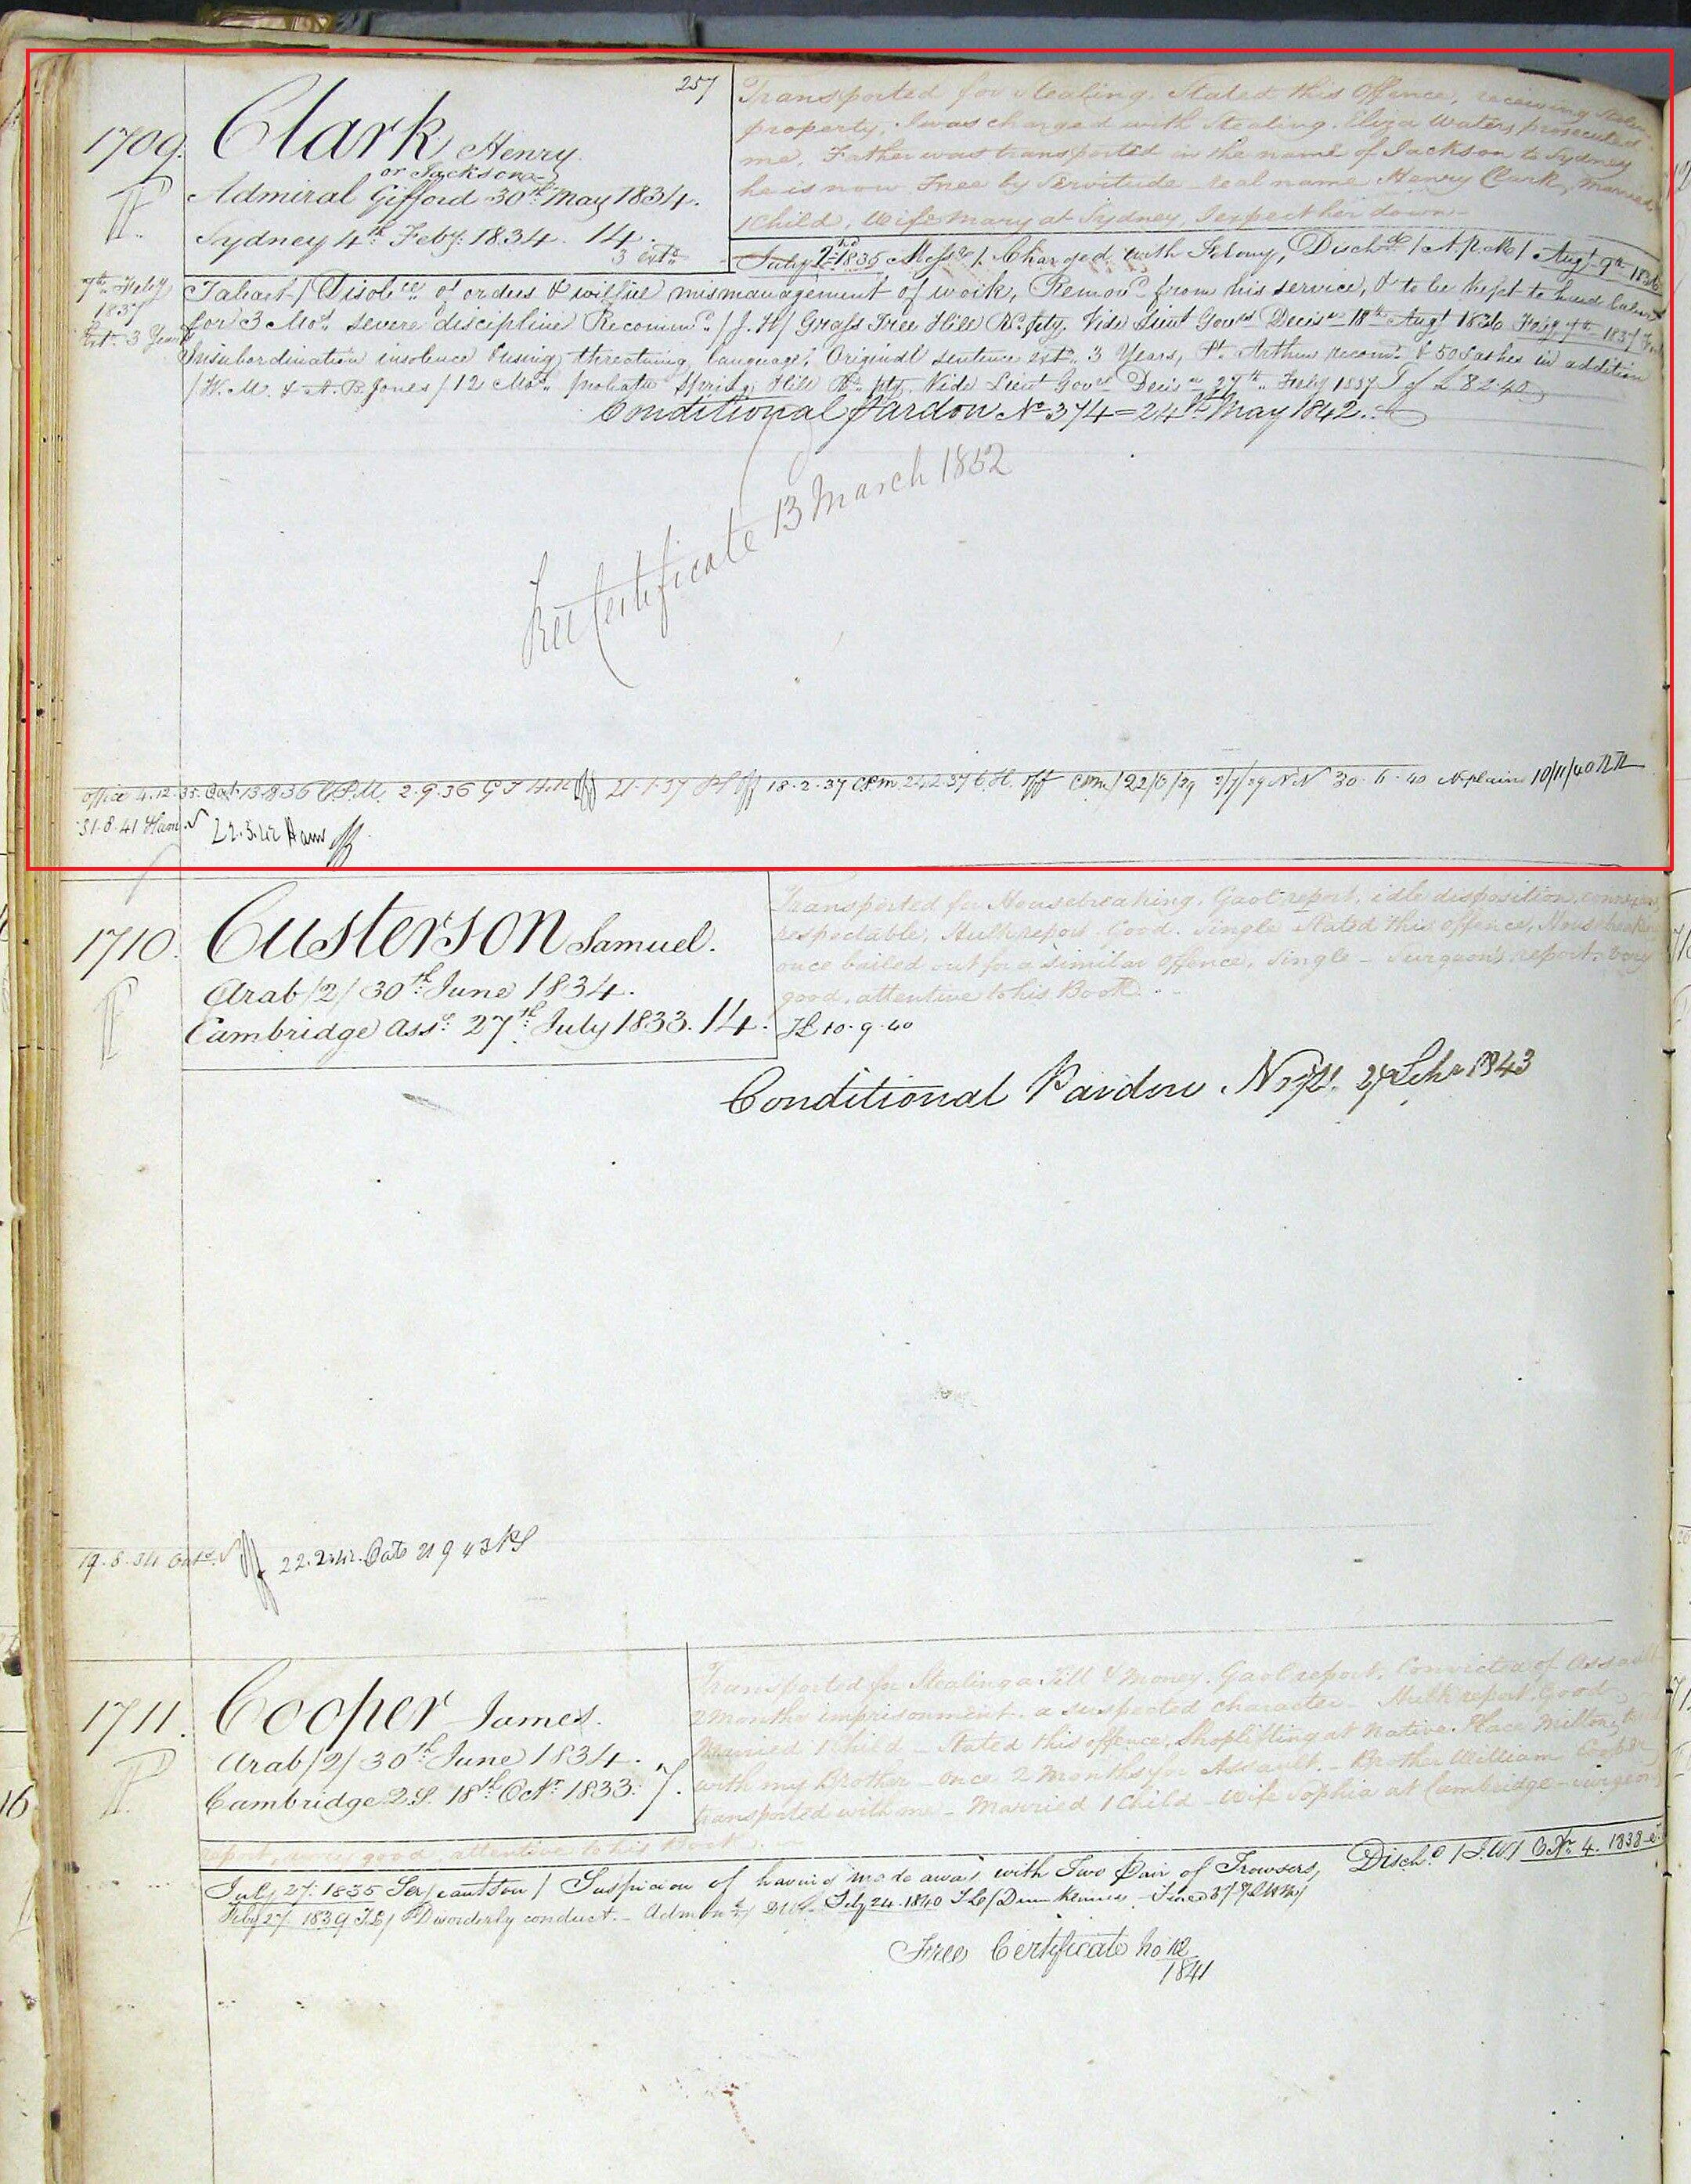 257
1709. Clark Henry
or Jackson
Admiral Gifford 30th May 1834.
Sydney 4th Feby. 1834. 14.
3 extn
Transported for Stealing. Stated this Offence, receiving Stolen
property, I was charged with Stealing. Eliza Waters prosecuted
me. Father was transported in the name of Jackson to Sydney
he is now Free by Servitude real name Henry Clark, Married
1 Child, Wife Mary at Sydney, I expect her down
July 2nd 1835 Charged with Felony, Dischd / A.P.M / Augt 9th 1836
7th Feby
1837
Ext. 3 Years
of orders & willful mismanagement of work, Removd from his service, & to be kept to
for 3 Mos. severe discipline Recommd / J. H / Grass Tree Hill Rd. Pty. Vide Lieut Govrs Decisn 18th Augt 1836 Feby 7th 1837
Insubordination insolence & using threatning language. Original sentence extd 3 Years, Pt. Arthur recomd & 50 Lashes in addition
/ W. M. & A. B. Jones / 12 Mos. probatn Spring Hill Rd. pty. Vide Lieut Govrs Decisn 27th Feby 1837 T of L 8 2. 40
Conditional Pardon No 374 = 24th May 1842.
Free Certificate 13 March 1852
Office 4.12.35. 13.8.36 C.P.M. 2.9.36 21.1.37 Off 18.2.37 CPM 24.2.37 Off CPM / 22/3/39 N.N 30. 40 N. plains 10/11/40
31.8.41 Ham 22.3.42 Ham
1710. Custerson Samuel.
Arab /2/ 30th June 1834.
Cambridge Asss. 27th July 1833. 14.
Transported for Housebreaking. Gaol report, idle disposition, connexions
respectable, Hulk report Good. Single Stated this offence, Housebreaking
once bailed out for a similar offence, Single – Surgeon's report very
good, attentive to his Book.
TL 10.9.40
Conditional Pardon 1843
19.8.34 22.2.42. Oats 21 9 43
1711. Cooper James.
Arab /2/ 30th June 1834.
Cambridge Q.S. 18th Octr. 1833. 7.
Transported for Stealing a Till & Money. Gaol report. Convicted of Assault
2 Months imprisonment. a suspected character – Hulk report. Good
Married 1 Child – Stated this offence, Shoplifting at Native Place Milton,
with my Brother – once 2 Months for Assault. – Brother William Cooper
transported with me – Married 1 Child – Wife Sophia at Cambridge – Surgeons
report, good attentive to his Book.
July 27. 1835 Serjeantson / Suspicion of having made away with Two Pair of Trowsers, Dischd / J.W / Octr 4. 1838
Feby 27 1839 TL / Disorderly conduct. – Admond July 24. 1840 TL / Drunkenness – Fined 5/
Free Certificate No 112
1841